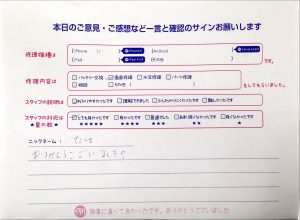 本日のご意見・ご感想など一言と確認のサインお願いします
修理機種は
□iPhone □Android
□iPad □その他 です。
修理内容は
□バッテリー交換 ☑画面修理 □水没修理 □パーツ修理
□相談 □その他( ) をしてもらいました。
スタッフの説明は □わかりやすかったです □理解できました □少しわかりにくかったです □難しかったです
スタッフの対応は ☑とても良かったです □良かったです □普通でした □あまり良くなかったです □良くなかったです
★星の数★ ★★★★★ ★★★★ ★★★ ★★ ★
ニックネーム：
ありがとうございました!!
修理に違って良かったです。ありがとうございました